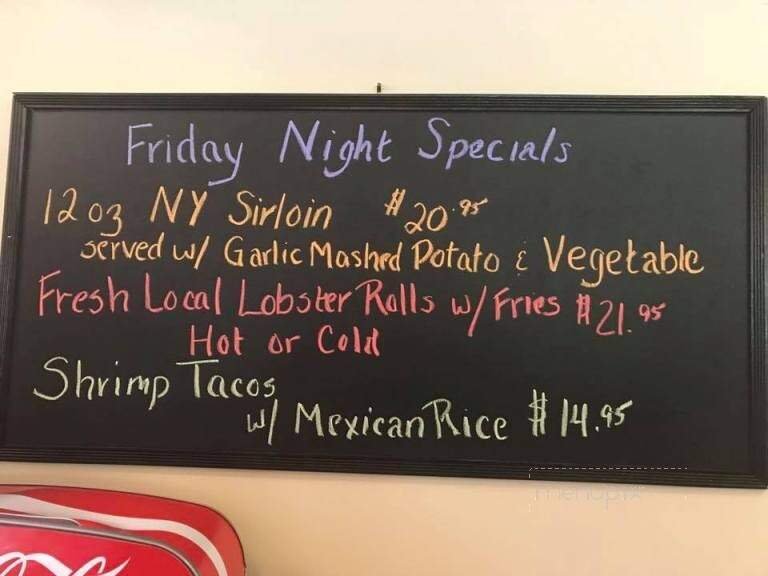 Friday Night Specials
12 oz NY Sirloin $20.95
served w/ Garlic Mashed Potato & Vegetable
Fresh Local Lobster Rolls w/ Fries $21.95
Hot or Cold
Shrimp Tacos
w/ Mexican Rice $14.95
menupix